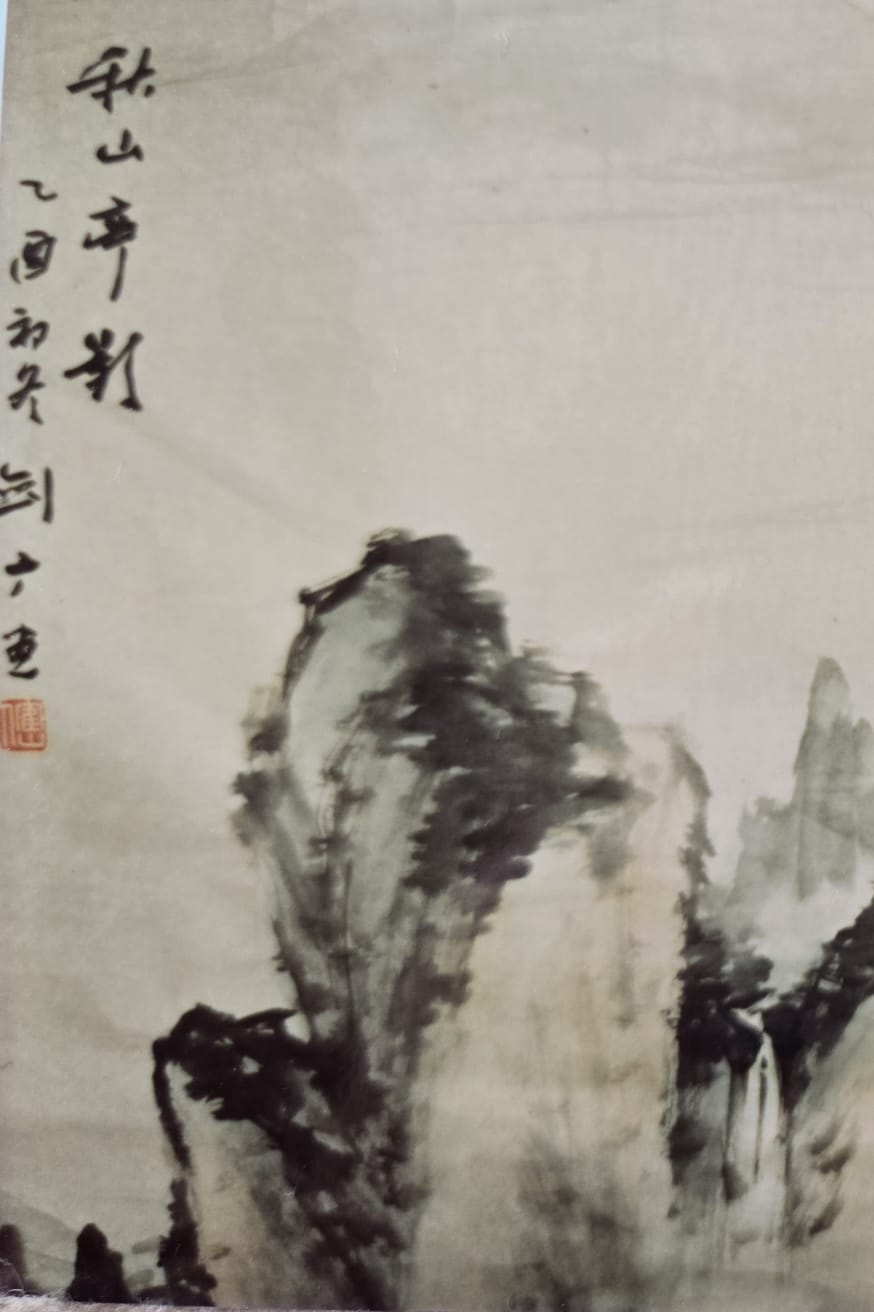 秋山亭影
乙酉初冬 剑 画